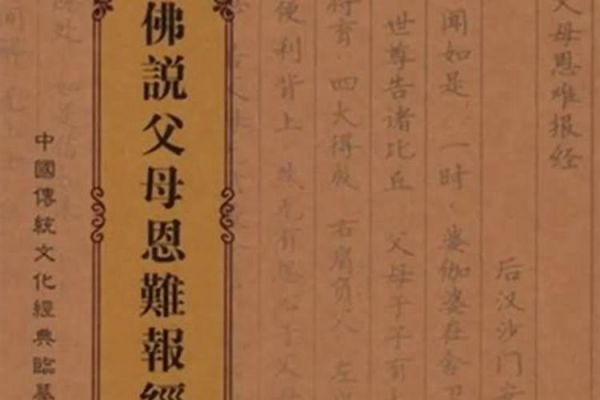 父母恩难报经
后汉沙门
闻如是 一时 婆伽婆在舍卫
世尊告诸比丘 父母于子有
将育 四大得成 右肩负父 左
便利背上 犹无有怨心于父
佛説父母恩難報經
中國傳統文化經典臨摹